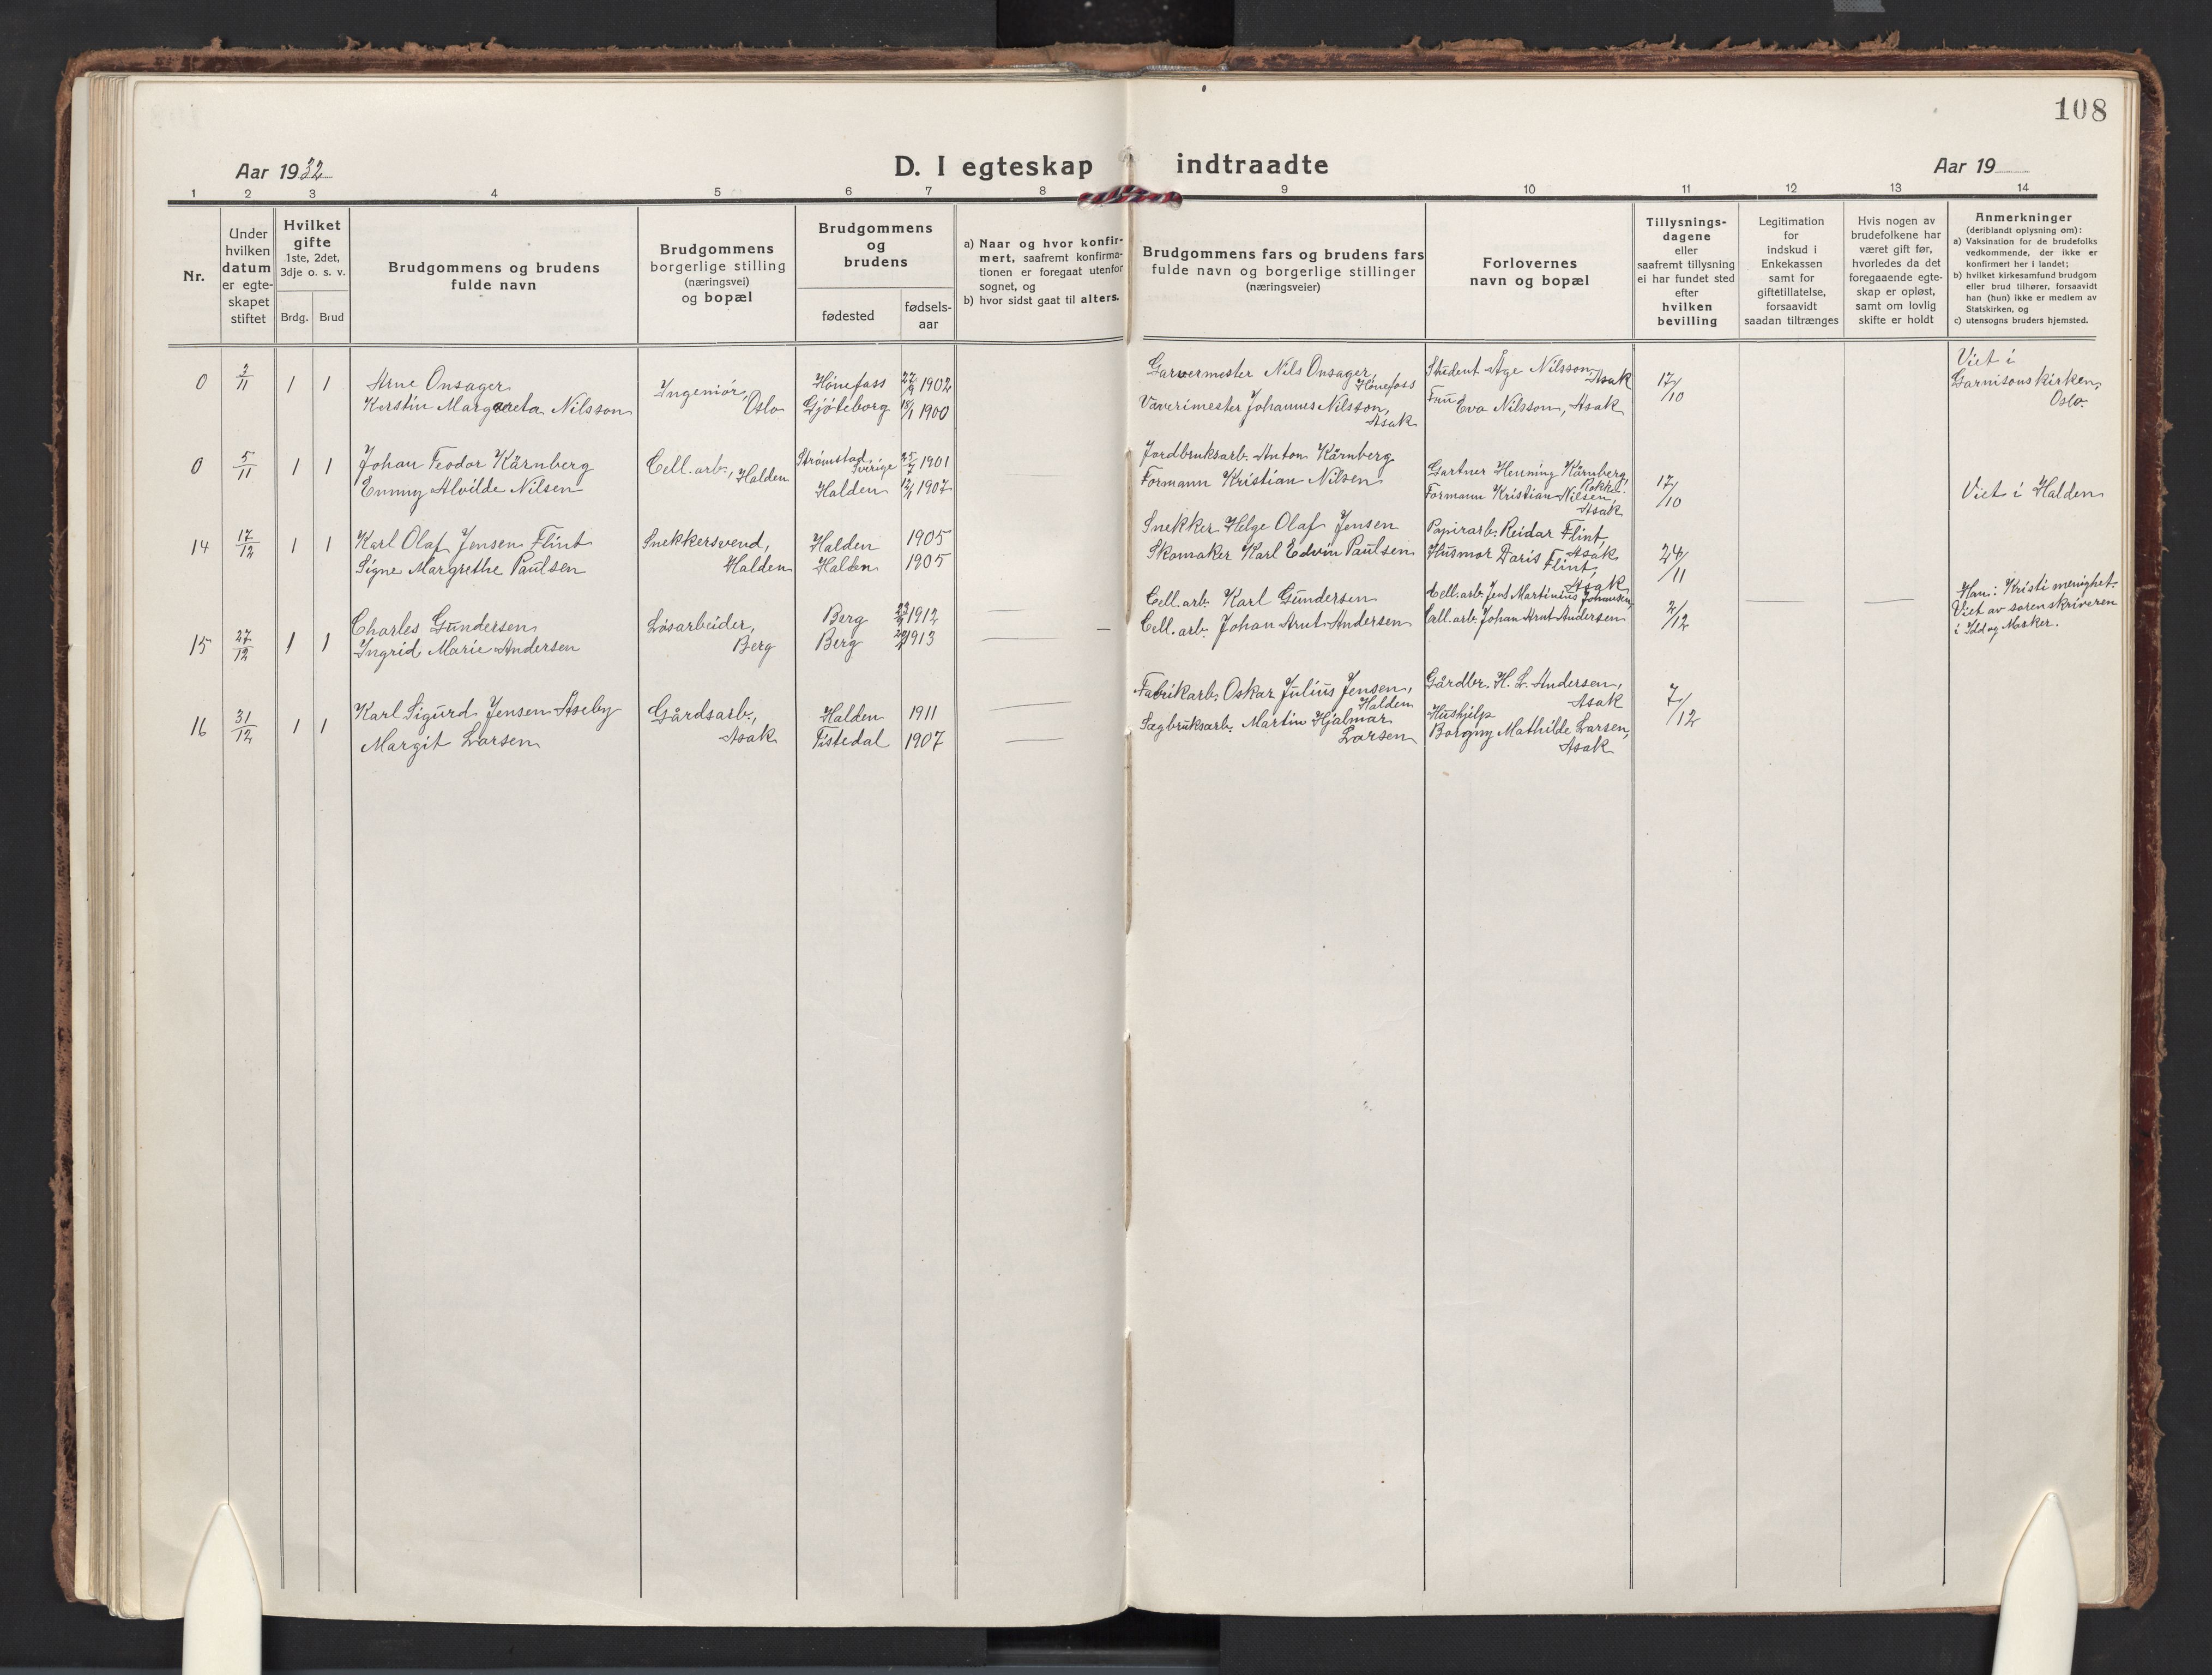 108
Aar 1932
D. I egteskap indtraadte
Aar 19
1 2 3 4 5 6 7 8 9 10 11 12 13 14
Nr.
Under
hvilken
datum
er egte-
skapet
stiftet
Hvilket
gifte
1ste, 2det,
3dje o. s. v.
Brdg. Brud
Brudgommens og brudens
fulde navn
Brudgommens
borgerlige stilling
(næringsvei)
og bopæl
Brudgommens
og
brudens
fødested
fødsels-
aar
a) Naar og hvor konfir-
mert, saafremt konfirma-
tionen er foregaat utenfor
sognet, og
b) hvor sidst gaat til alters.
Brudgommens fars og brudens fars
fulde navn og borgerlige stillinger
(næringsveier)
Forlovernes
navn og bopæl
Tillysnings-
dagene
eller
saafremt tillysning
ei har fundet sted
efter
hvilken
bevilling
Legitimation
for
indskud i
Enkekassen
samt for
giftetillatelse,
forsaavidt
saadan tiltrænges
Hvis nogen av
brudefolkene har
været gift før,
hvorledes da det
foregaaende egte-
skap er opløst,
samt om lovlig
skifte er holdt
Anmerkninger
(deriblandt oplysning om):
a) Vaksination for de brudefolks
vedkommende, der ikke er
konfirmert her i landet;
b) hvilket kirkesamfund brudgom
eller brud tilhører, forsaavidt
han (hun) ikke er medlem av
Statskirken, og
c) utensogns bruders hjemsted.
0 3/11 1 1
Arne Onsager
Kerstin Margareta Nilsson
Ingeniør,
Oslo
Hönefoss 1902
Gjöteborg 1900
Garvermester Nils Onsager,
Hönefoss
Väverimester Johannes Nilsson,
Asak
Student Åge Nilsson,
Asak
Fru Eva Nilsson, Asak
17/10
Viet i
Garnisonskirken,
Oslo.
0 5/11 1 1
Johan Teodor Kärnberg
Emmy Alvilde Nilsen
Cell. arb., Halden
Strömstad, Sverige 1901
Halden 1907
Jordbruksarb. Anton Kärnberg
Formann Kristian Nilsen
Gartner Henning Kärnberg,
Rokke.
Formann Kristian Nilsen,
Asak
17/10
Viet i Halden
14 17/12 1 1
Karl Olaf Jensen Flint
Signe Margrethe Paulsen
Snekkersvend,
Halden
Halden 1905
Halden 1905
Snekker Helge Olaf Jensen
Skomaker Karl Edvin Paulsen
Papirarb. Reidar Flint,
Asak
Husmor Doris Flint,
Asak
24/11
15 27/12 1 1
Charles Gundersen
Ingrid Marie Andersen
Løsarbeider,
Berg
Berg 1912
Berg 1913
Cell. arb. Karl Gundersen
Cell. arb. Johan Arnt Andersen
Cell. arb. Jens Martinius Johansen
Cell. arb. Johan Arnt Andersen
2/12
Han: Kristi menighet.
Viet av sorenskriveren
i Idd og Marker.
16 31/12 1 1
Karl Sigurd Jensen Aseby
Margit Larsen
Gårdsarb.,
Asak
Halden 1911
Tistedal 1907
Fabrikarb. Oskar Julius Jensen,
Halden
Sagbruksarb. Martin Hjalmar
Larsen
Gårdbr. H. L. Andersen,
Asak
Hushjelp
Borgny Mathilde Larsen,
Asak
7/12